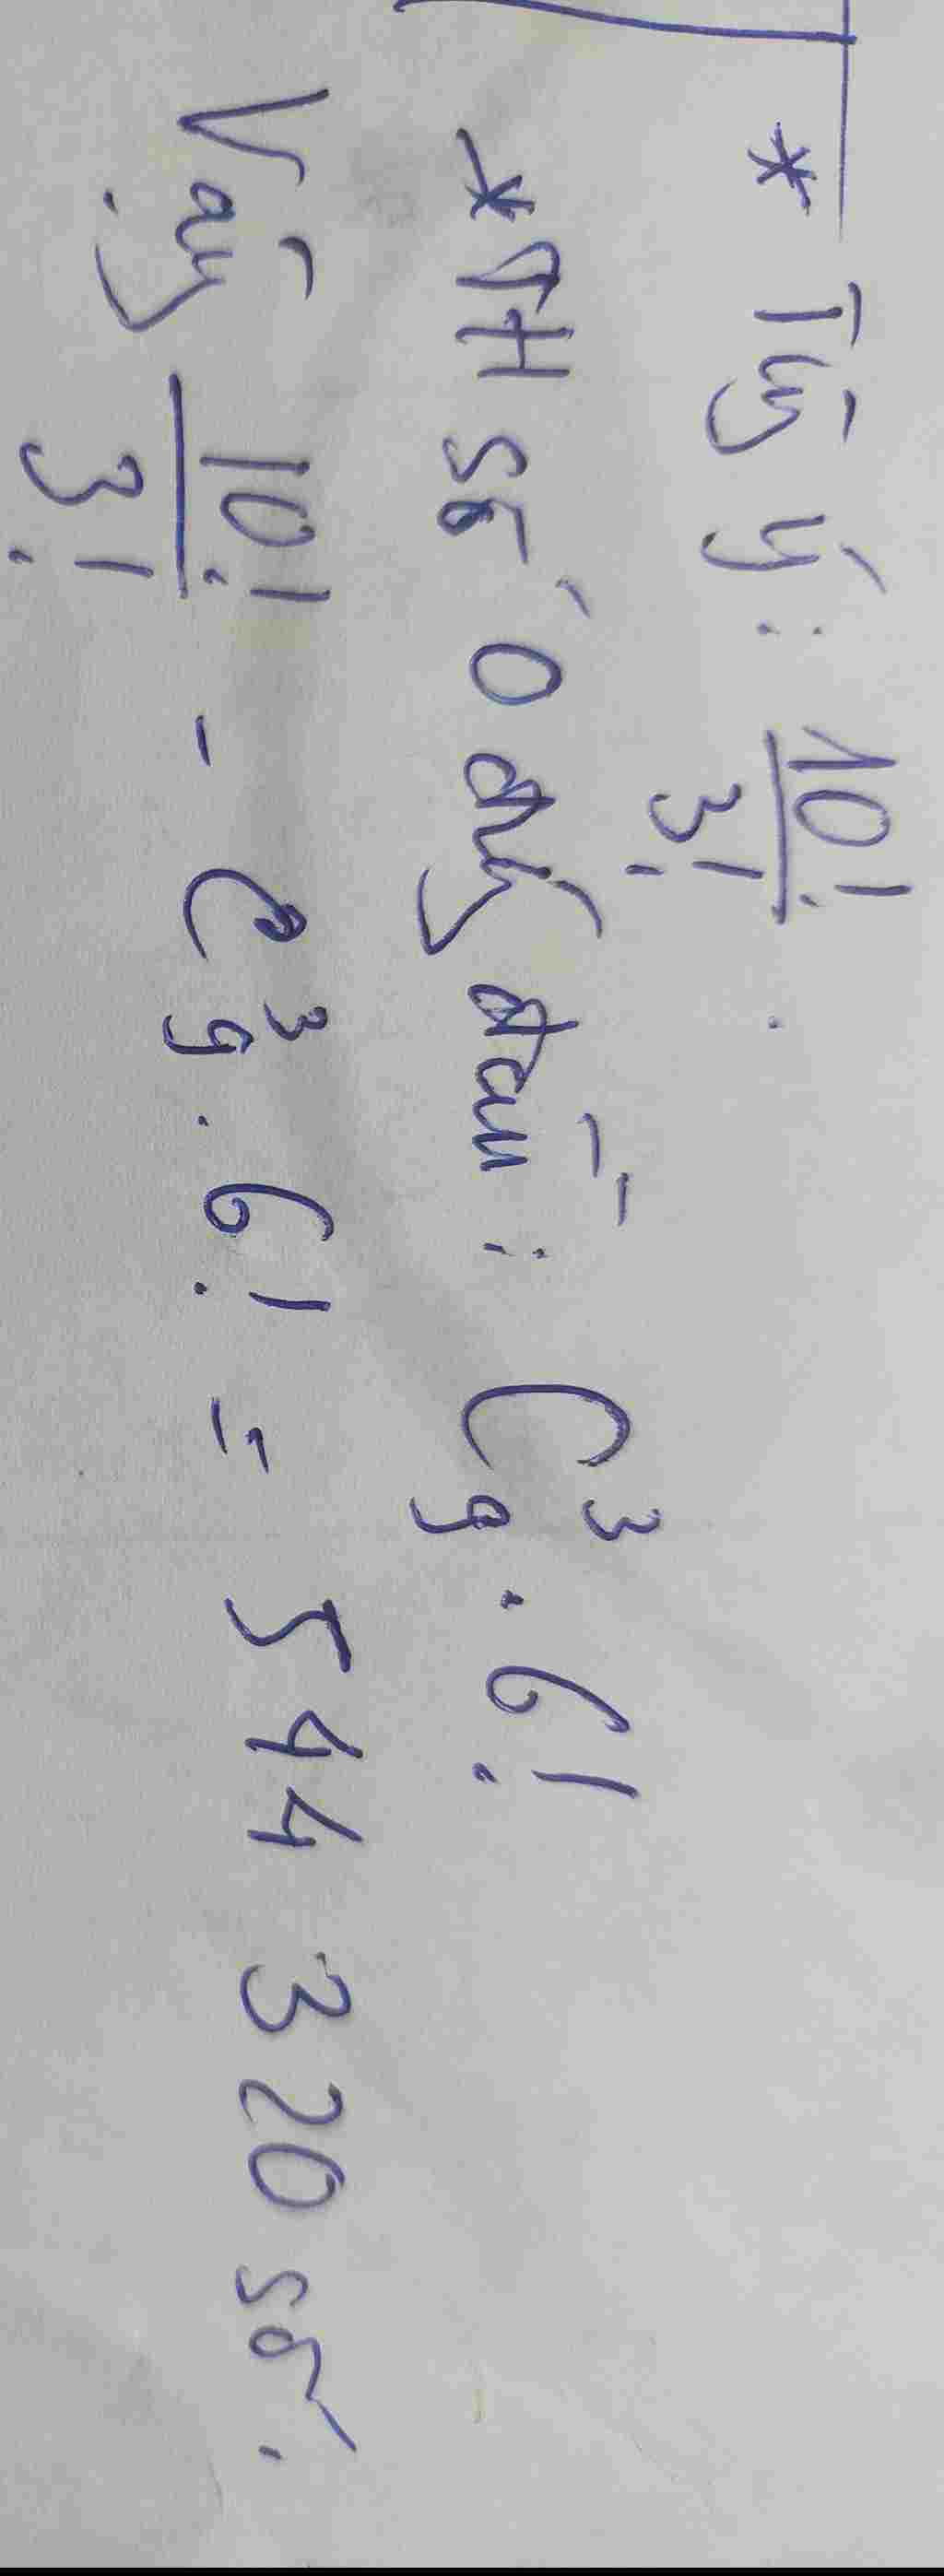 * Tùy ý: 10!/3!
*TH số 0 đứng đầu: C₉³ . 6!
Vậy 10!/3! - C₉³ . 6! = 544 320 số.